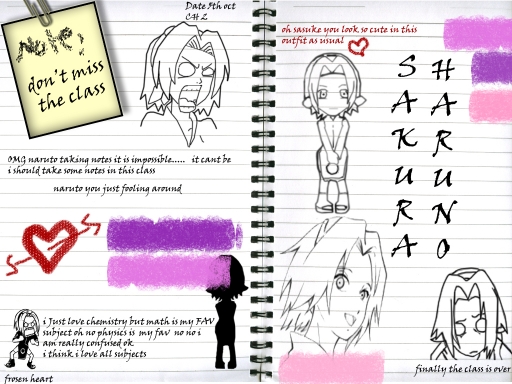 Date 5th oct
CH 2
Note!
don't miss
the class
OMG naruto taking notes it is impossible..... it cant be
i should take some notes in this class
naruto you just fooling around
S
S
i Just love chemistry but math is my FAV
subject oh no physics is my fav no no i
am really confused ok
i think i love all subjects
frosen heart
oh sasuke you look so cute in this
outfit as usual
SAKURA
HARUNO
finally the class is over